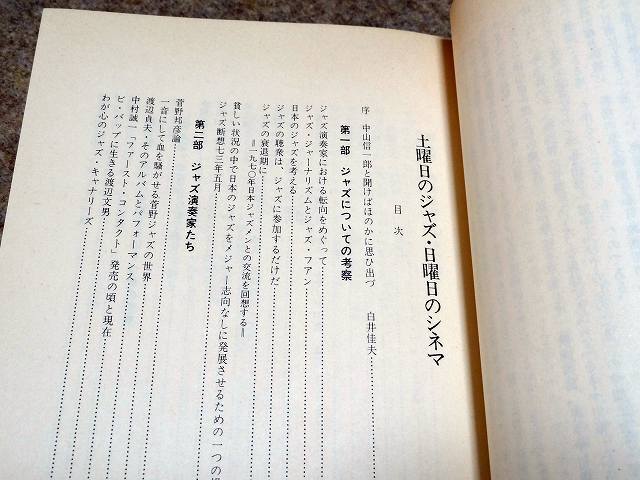 土曜日のジャズ・日曜日のシネマ
目次
序　中山信一郎と聞けばほのかに思ひ出づ　白井佳夫
第一部　ジャズについての考察
ジャズ演奏家における転向をめぐって
ジャズ・ジャーナリズムとジャズ・フアン
日本のジャズを考える
ジャズの聴衆は、ジャズに参加するだけだ
ジャズの衰退期に
＝一九七〇年日本ジャズメンとの交流を回想する＝
貧しい状況の中で日本のジャズをメジャー志向なしに発展させるための一つの
ジャズ断想七三年五月
第二部　ジャズ演奏家たち
菅野邦彦論
一音にして血を騒がせる菅野ジャズの世界
渡辺貞夫・そのアルバムとパフォーマンス
中村誠一「ファースト・コンタクト」発売の頃と現在
ビ・バップに生きる渡辺文男
わが心のジャズ・キャナリーズ